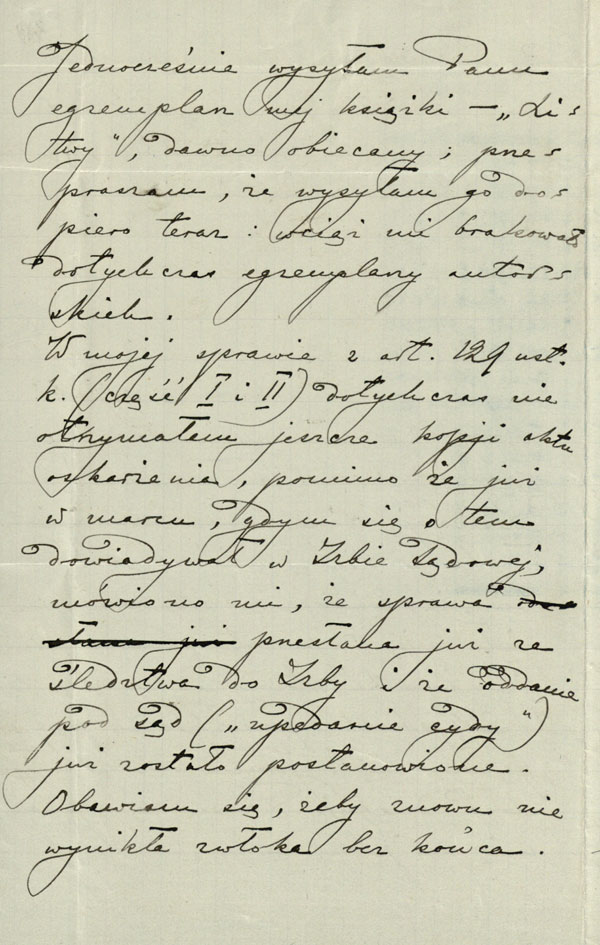 Jednocześnie wysyłam Panu
egzemplarz mej książki – „Li-
twy“, dawno obiecany; prze-
praszam, że wysyłam go do-
piero teraz: wciąż mi brakowało
dotychczas egzemplarzy autor-
skich.
W mojej sprawie z art. 129 ust.
k. (część I i II) dotychczas nie
otrzymałem jeszcze kopji aktu
oskarżenia, pomimo że już
w marcu, gdym się o tem
dowiadywał w Izbie Sądowej,
mówiono mi, że sprawa
przesłana już ze
śledztwa do Izby i że oddanie
pod sąd („преданіе суду“)
już zostało postanowione.
Obawiam się, żeby znowu nie
wynikła zwłoka bez końca.